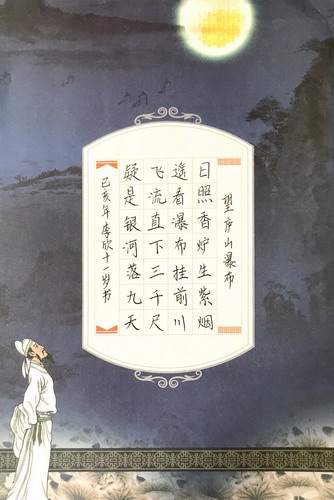 望庐山瀑布
日照香炉生紫烟
遥看瀑布挂前川
飞流直下三千尺
疑是银河落九天
己亥年李欣十一岁书